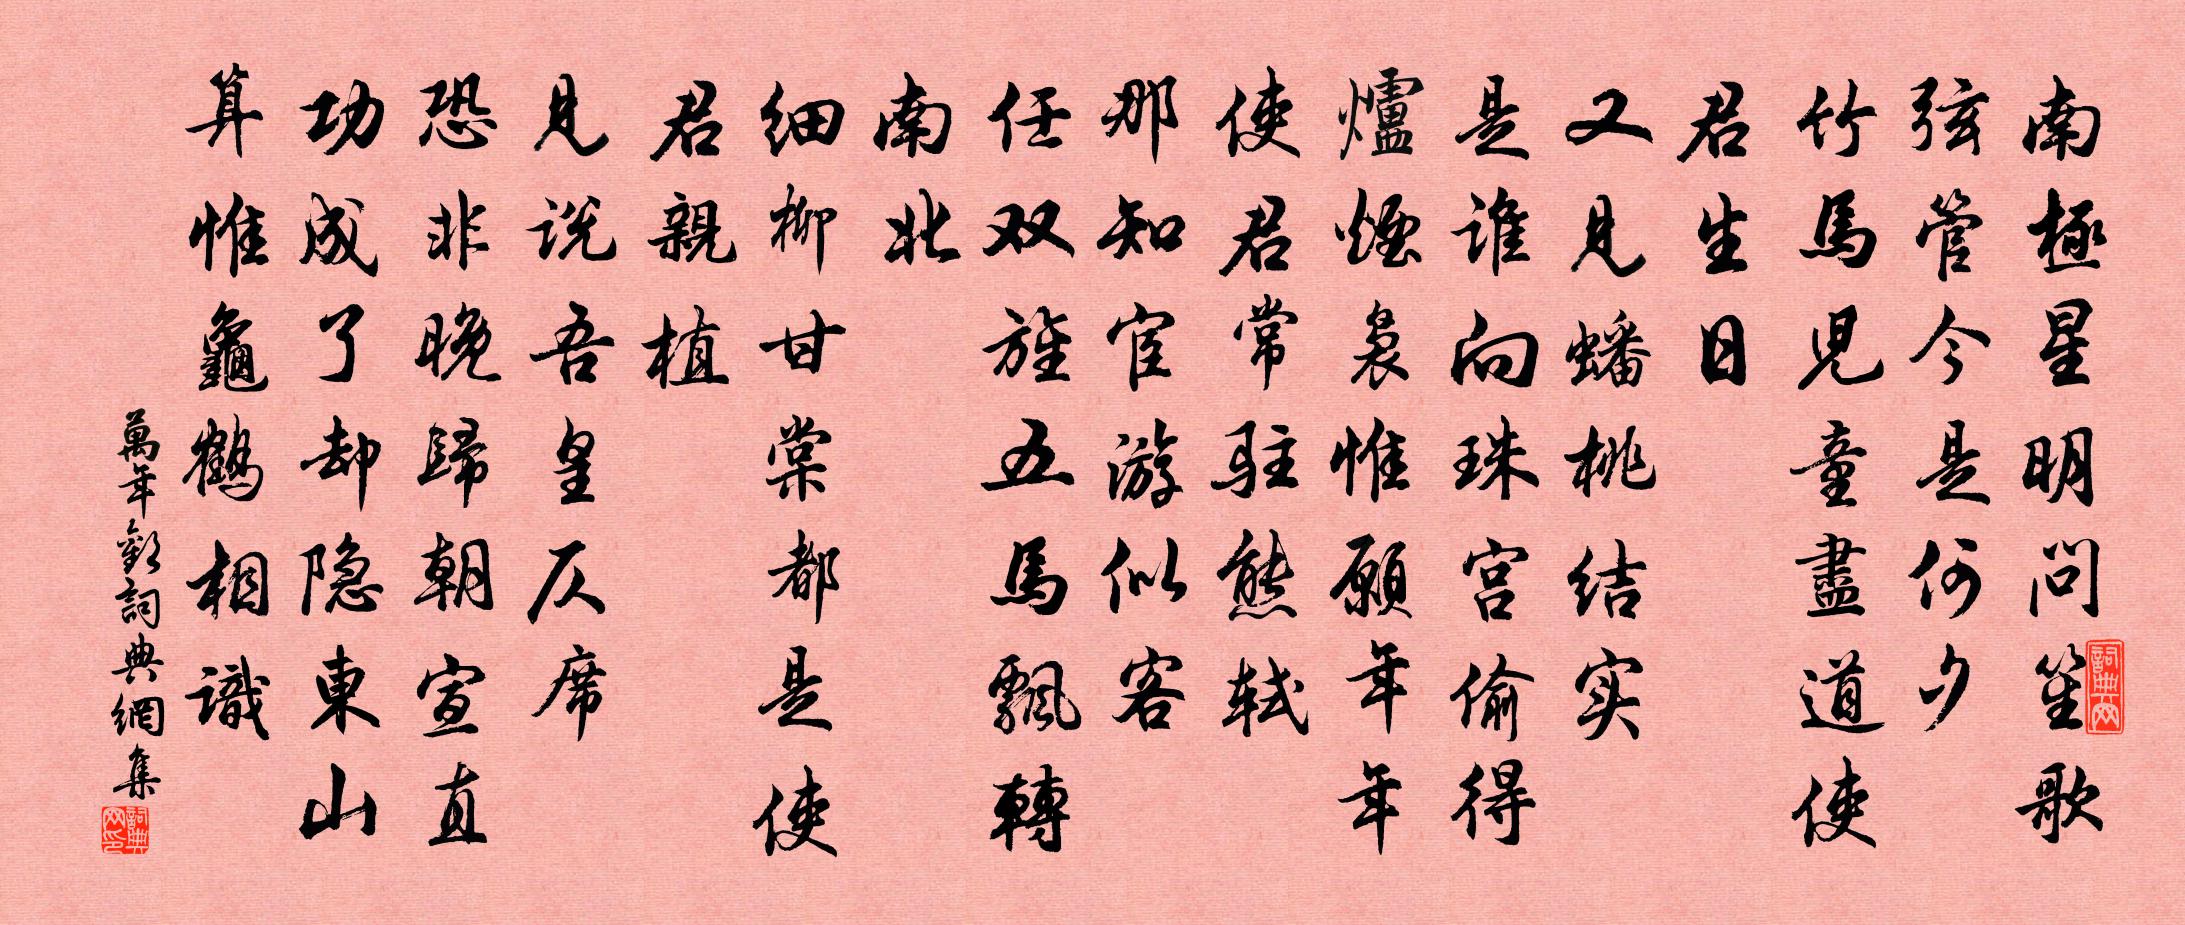 南極星明問笙歌
弦管今是何夕
竹馬児童盡道使
君生日
又見蟠桃结实
是谁向珠宫偷得
爐煙裊惟願年年
使君常駐熊轼
那知宦游似客
任双旌五馬飄轉
南北
细柳甘棠都是使
君親植
見说吾皇仄席
恐非晚歸朝宣直
功成了却隐東山
算惟龜鶴相識
萬年歡詞典網集
詞典网
詞典网印